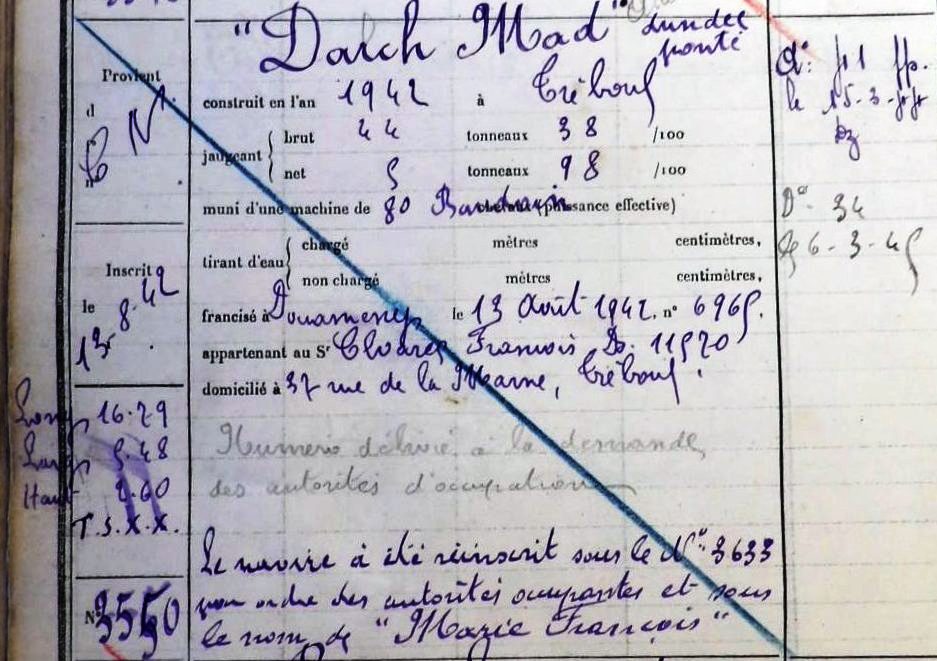 "Darch Mad" Dundee
ponté
Provient
d
CN
n°
construit en l'an 1942 à Tréboul
jaugeant { brut 44 tonneaux 38 /100
net 5 tonneaux 98 /100
muni d'une machine de 80 Baudouin (puissance effective)
tirant d'eau { chargé mètres centimètres,
non chargé mètres centimètres,
Inscrit
le 13.8.42
francisé à Douarnenez le 13 Août 1942. n° 6965.
appartenant au Sr Cloarec François Dz. 11520
domicilié à 37 rue de la Marne, Tréboul.
Long 16.29
Larg 5.48
Haut 2.60
T.S.X.X.
Numéro délivré à la demande
des autorités d'occupation
Le navire a été réinscrit sous le N° 3633
par ordre des autorités occupantes et sous
le nom de "Marie François"
N° 3550
le 15-3-
Dz
D° 34
6-3-45